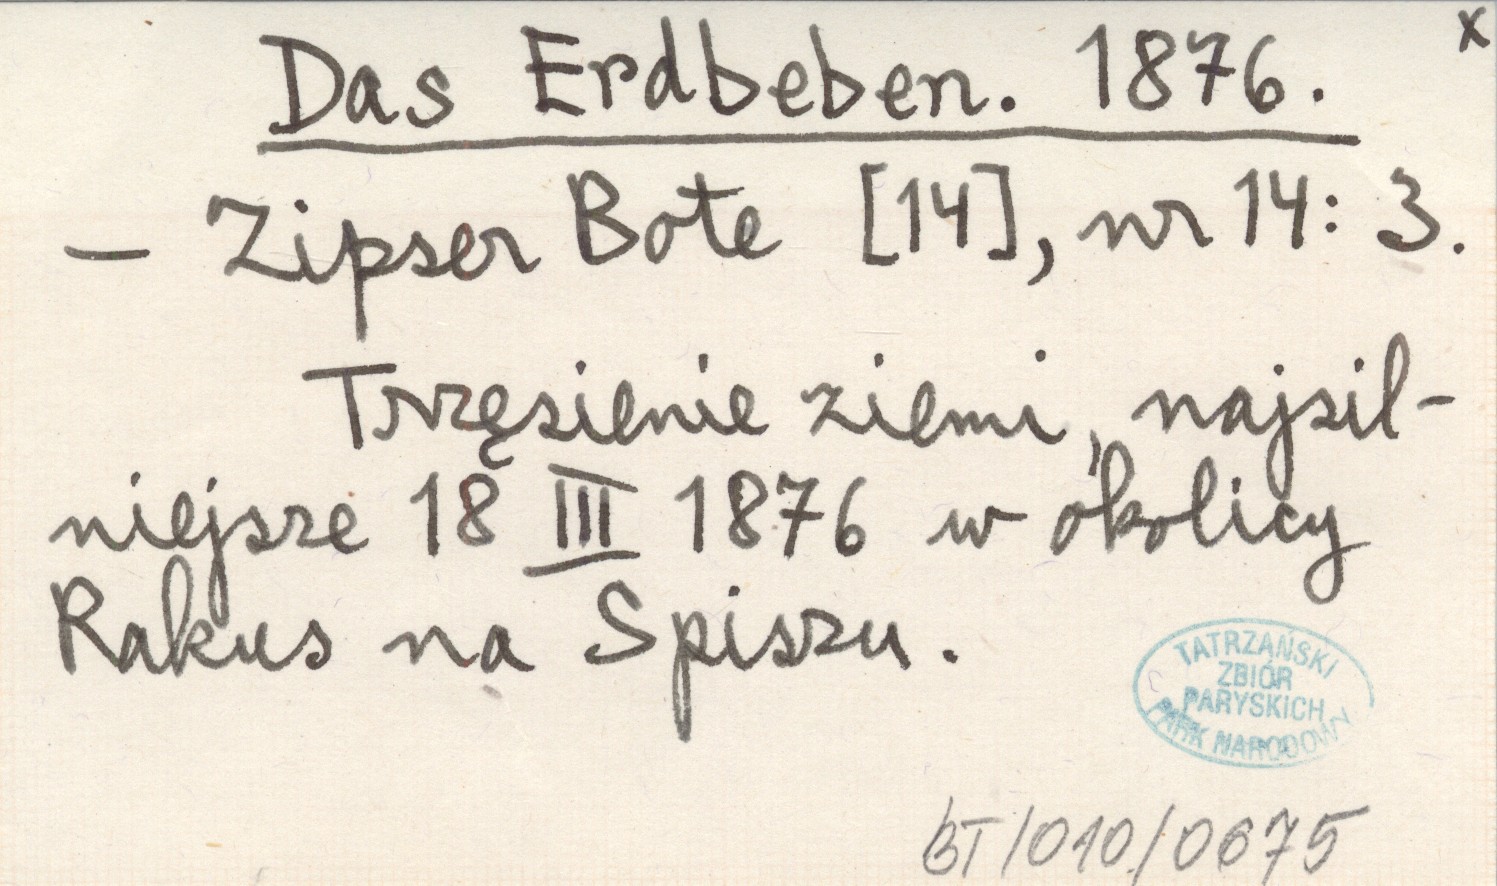 x
Das Erdbeben. 1876.
— Zipser Bote [14], nr 14: 3.
Trzęsienie ziemi, najsil-
niejsze 18 III 1876 w okolicy
Rakus na Spiszu.
TATRZAŃSKI
ZBIÓR
PARYSKICH
PARK NARODOWY
BT/010/0675